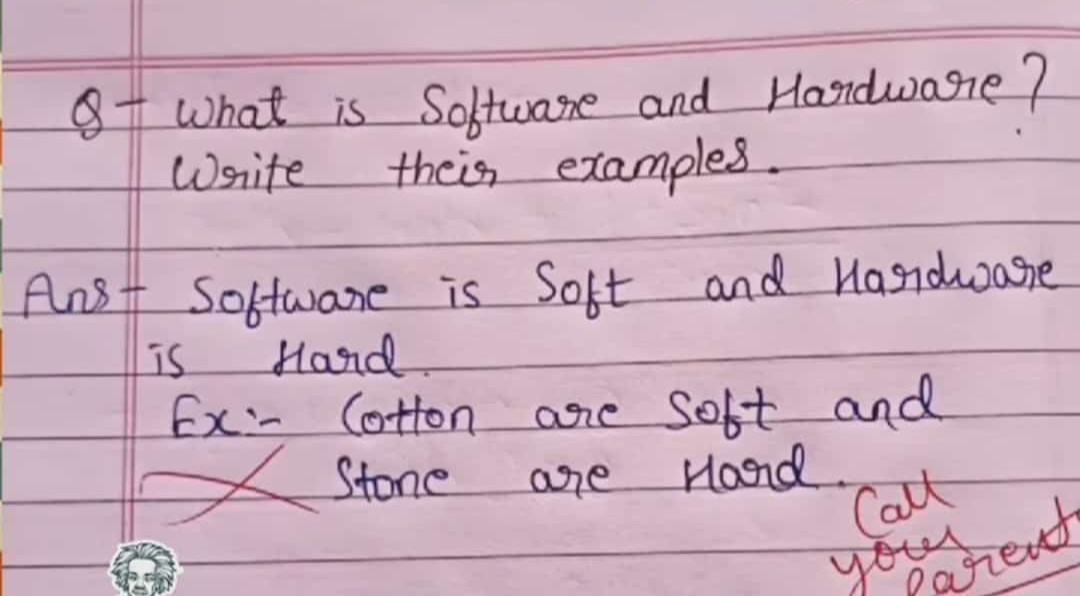 Q- What is Software and Hardware?
Write their examples.
Ans- Software is Soft and Hardware
is Hard.
Ex:- Cotton are Soft and
Stone are Hard.
Call
your
parents